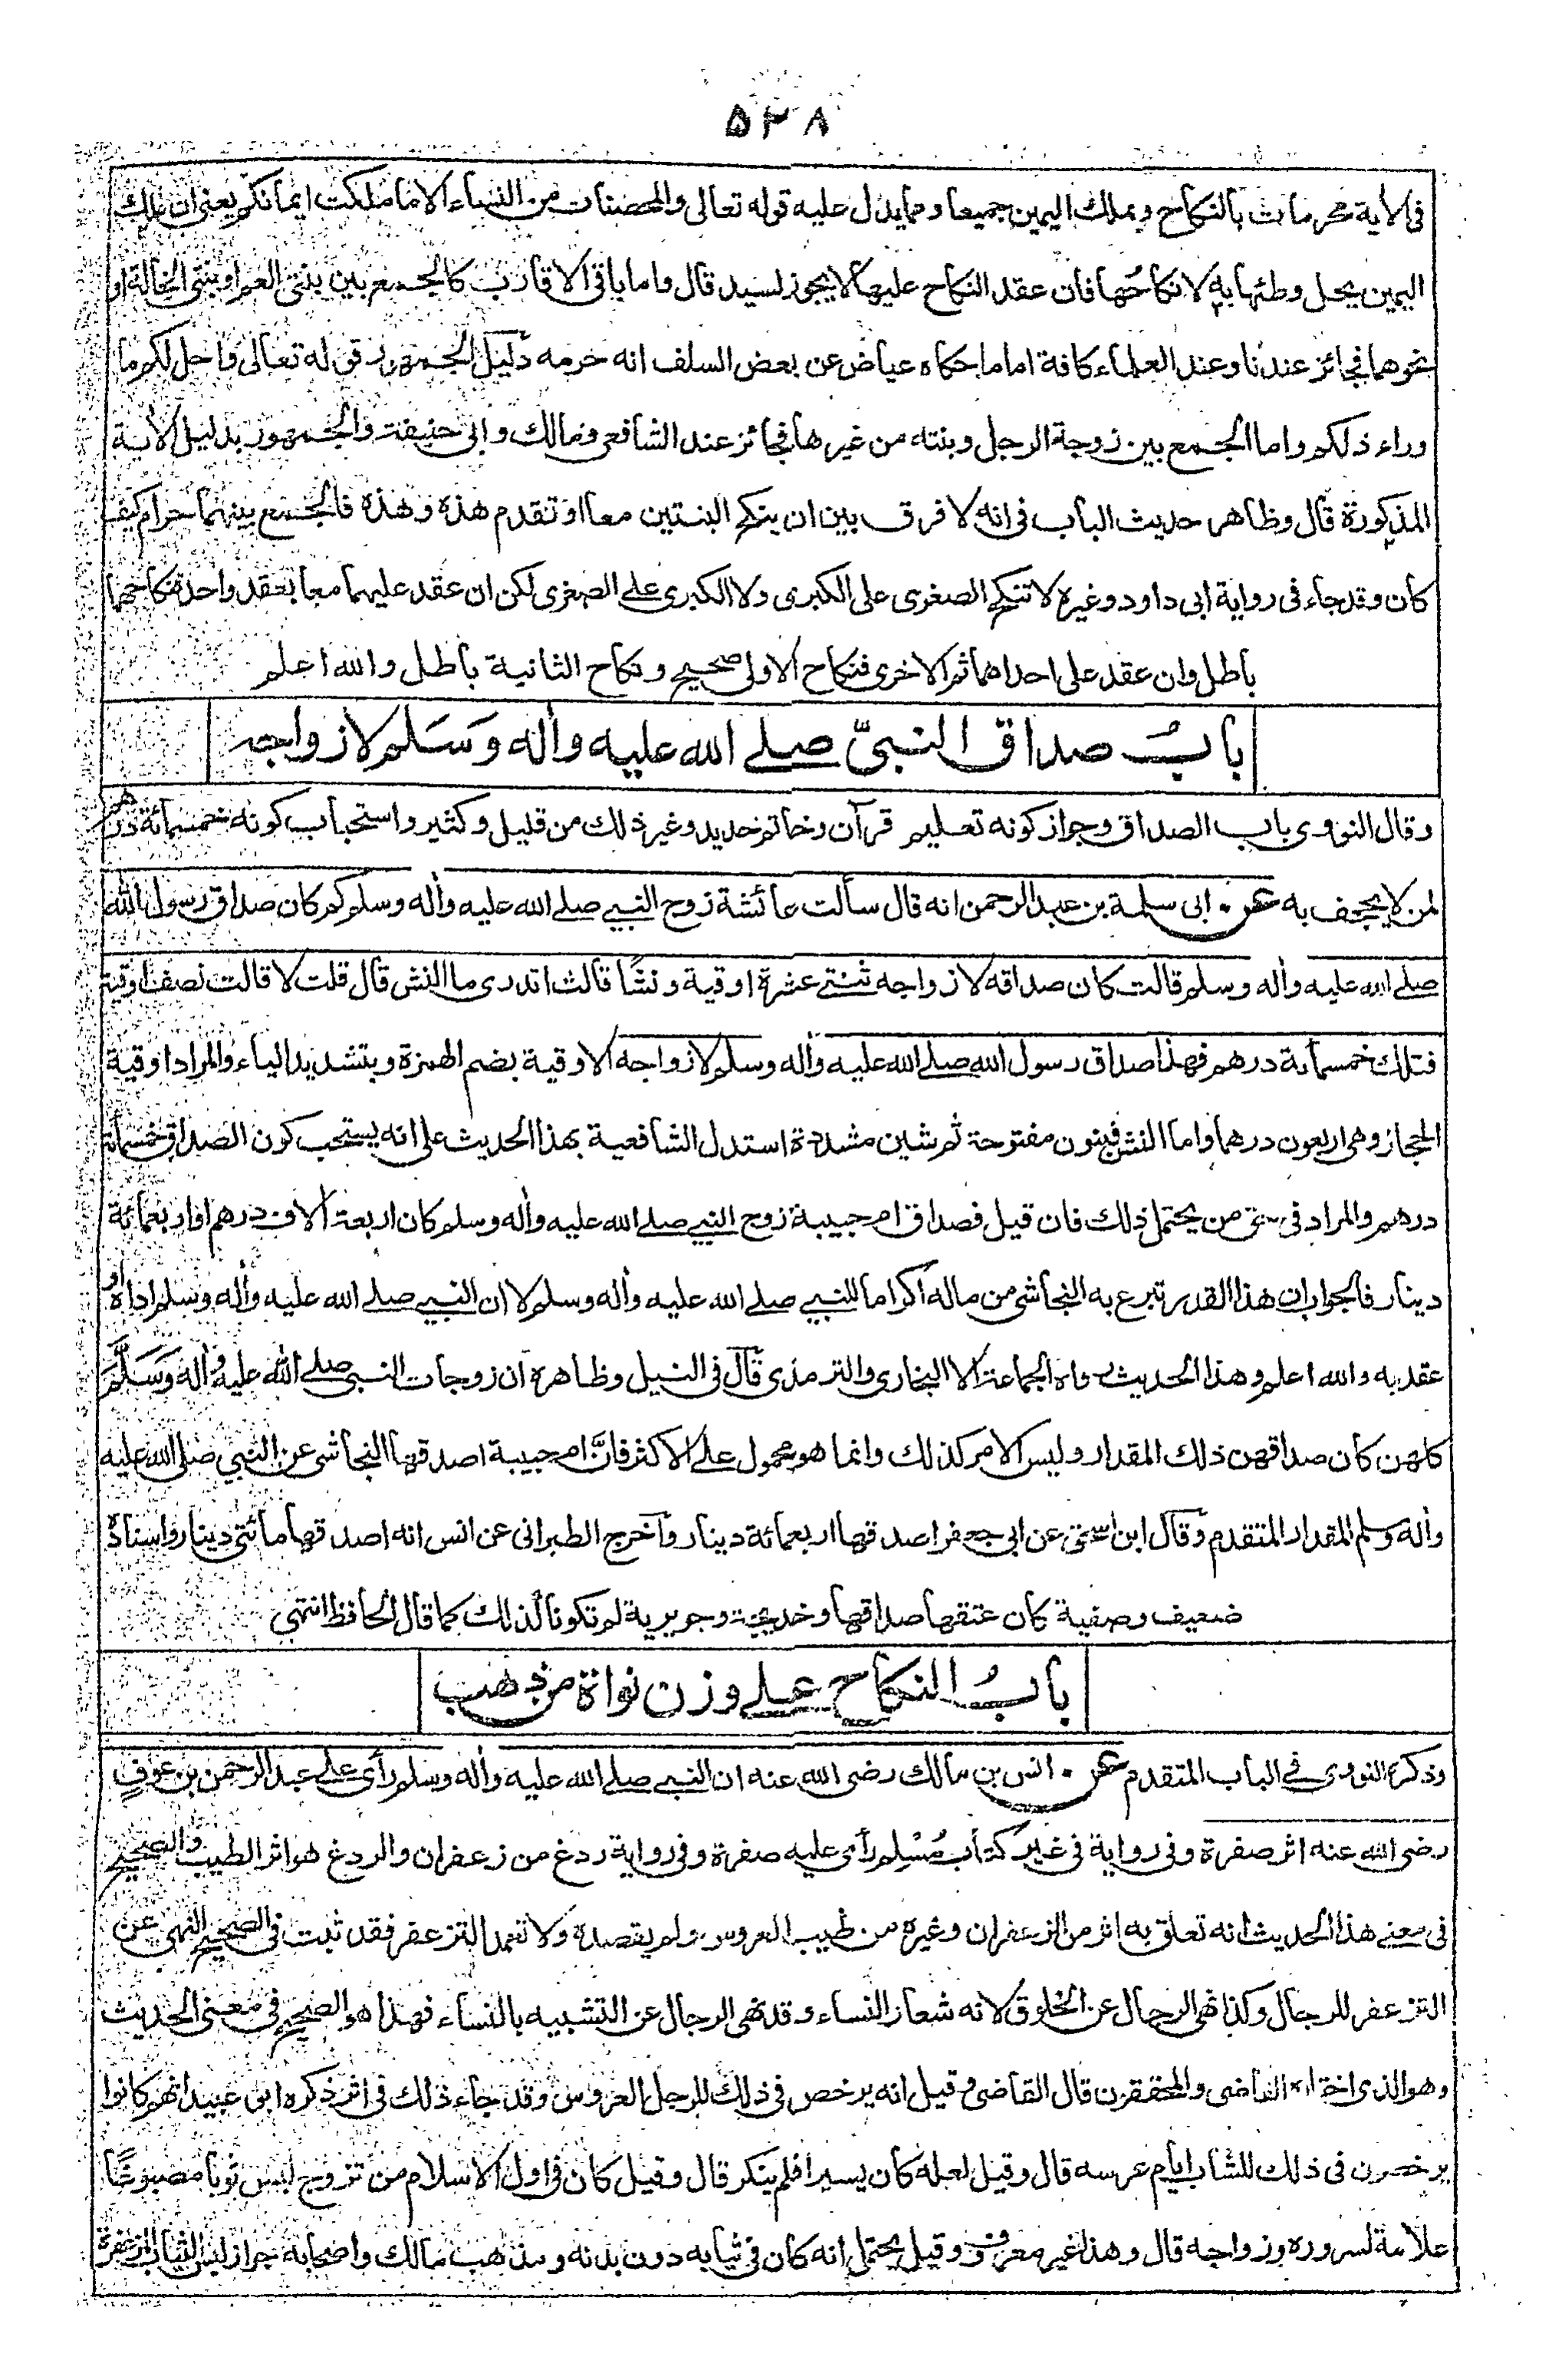 ۵۲۸
فى الاية محرمات بالنكاح وبملك اليمين جميعا ومما يدل عليه قوله تعالى والمحصنات من النساء الا ما ملكت ايمانكم يعنى ان ملك
اليمين يحل وطئها به لا نكاحُها فان عقد النكاح عليها لا يجوز لسيد قال واما باقى الاقارب كالجمع بين بنتى العم او بنتى الخالة او
نحوهما فجائز عندنا وعند العلماء كافة اما ما حكاه عياض عن بعض السلف انه حرمه دليل الجمهور قوله تعالى واحل لكم ما
وراء ذلكم واما الجمع بين زوجة الرجل وبنته من غيرها فجائز عند الشافعى ومالك وابى حنيفة والجمهور بدليل الاية
المذكورة قال وظاهر حديث الباب فى انه لا فرق بين ان ينكح البنتين معا او تقدم هذه وهذه فالجمع بينهما حرام كيف
كان وقد جاء فى رواية ابى داود وغيره لا تنكح الصغرى على الكبرى ولا الكبرى على الصغرى لكن ان عقد عليهما معا بعقد واحد فنكاحهما
باطل وان عقد على احداهما ثم الاخرى فنكاح الاولى صحيح ونكاح الثانية باطل والله اعلم
بابُ صداق النبىّ صلے الله عليه وأله وَسَلم لازواجه
وقال النووى باب الصداق وجواز كونه تعليم قرآن وخاتم حديد وغير ذلك من قليل وكثير واستحباب كونه خمسمائة درهم
لمن لا يجحف به عن ابى سلمة بن عبد الرحمن انه قال سألت عائشة زوج النبى صلے الله عليه وأله وسلم كم كان صداق رسول الله
صلے الله عليه وأله وسلم قالت كان صداقه لازواجه ثنتى عشرة اوقية ونشًا قالت اتدرى ما النش قال قلت لا قالت نصف اوقية
فتلك خمسمائة درهم فهذا صداق رسول الله صلے الله عليه وأله وسلم لازواجه الاوقية بضم الهمزة وبتشديد الياء والمراد اوقية
الحجاز وهى اربعون درهما واما النش فبنون مفتوحة ثم شين مشددة استدل الشافعية بهذا الحديث على انه يستحب كون الصداق خمسمائة
درهم والمراد فى حق من يحتمل ذلك فان قيل فصداق ام حبيبة زوج النبى صلے الله عليه وأله وسلم كان اربعة الاف درهم او اربعمائة
دينار فالجواب ان هذا القدر تبرع به النجاشى من ماله اكراما للنبى صلے الله عليه وأله وسلم لا ان النبى صلے الله عليه وأله وسلم اداه او
عقد به والله اعلم وهذا الحديث رواه الجماعة الا البخارى والترمذى قال فى النيل وظاهره ان زوجات النبى صلے الله عليه وأله وَسَلَّمَ
كلهن كان صداقهن ذلك المقدار وليس الامر كذلك وانما هو محمول على الاكثر فانَّ ام حبيبة اصدقها النجاشى عن النبى صلى الله عليه
وأله وسلم المقدار المتقدم وقال ابن اسحق عن ابى جعفر اصدقها اربعمائة دينار واخرج الطبرانى عن انس انه اصدقها مائتى دينار واسناده
ضعيف وصفية كان عتقها صداقها وخديجة وجويرية لم تكونا كذلك كما قال الحافظ انتهى
بابُ النكاح علے وزن نواة من ذهب
وذكره النووى فى الباب المتقدم عن انس بن مالك رضى الله عنه ان النبى صلے الله عليه وأله وسلم رأى على عبد الرحمن بن عوفٍ
رضى الله عنه اثر صفرة وفى رواية فى غير كتاب مُسْلِم رأى عليه صفرة وفى رواية ردغ من زعفران والردغ هو اثر الطيب والصحيح
فى معنے هذا الحديث انه تعلق به اثر من الزعفران وغيره من طيب العروس ولم يقصده ولا تعمد التزعفر فقد ثبت فى الصحيح النهى عن
التزعفر للرجال وكذا نهى الرجال عن الخلوق لانه شعار النساء وقد نهى الرجال عن التشبيه بالنساء فهذا هو الصحيح فى معنى الحديث
وهو الذى اختاره القاضى والمحققون قال القاضى وقيل انه يرخص فى ذلك للرجل العروس وقد جاء ذلك فى اثر ذكره ابو عبيد انهم كانوا
يرخصون فى ذلك للشاب ايام عرسه قال وقيل لعله كان يسيرا فلم ينكر قال وقيل كان فى اول الاسلام من تزوج لبس ثوبا مصبوغًا
علامة لسروره وزواجه قال وهذا غير معروف وقيل يحتمل انه كان فى ثيابه دون بدنه ومذهب مالك واصحابه جواز لبس الثياب المزعفرة